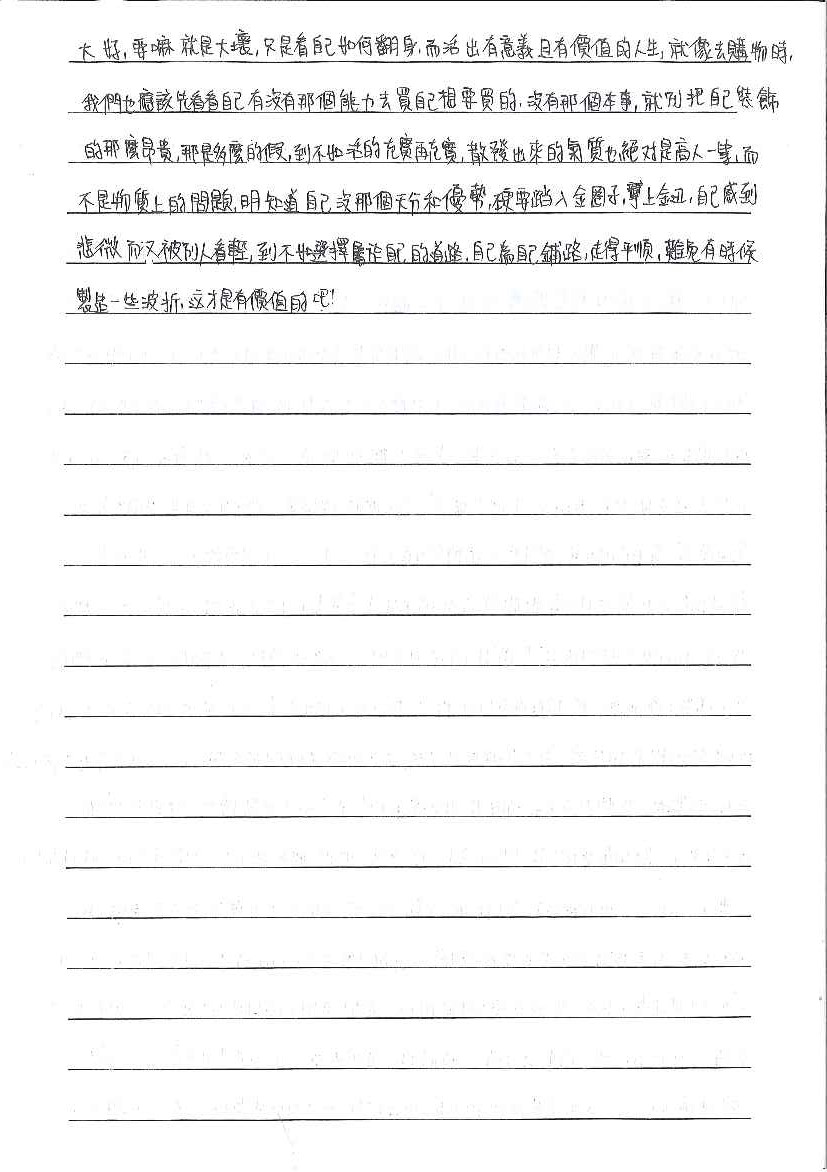 大好，要嘛就是大壞，只是看自己如何翻身，而活出有意義且有價值的人生，就像去購物時，
我們也應該先看看自己有沒有那個能力去買自己想要買的，沒有那個本事，就別把自己裝飾
的那麼昂貴，那是多麼的假，到不如活的充實再充實，散發出來的氣质也絕对是高人一等，而
不是物質上的問題，明知道自己沒那個天份和優勢，硬要踏入金圈子，攀上金，自己感到
悲微而又被別人看輕，到不如選擇屬於自己的道路，自己為自己鋪路，走得平順，難免有時候
製造一些波折，这才是有價值的吧！